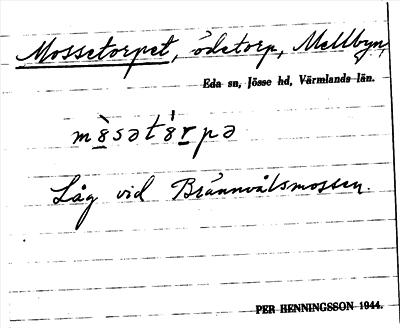 Mossetorpet, ödetorp, Mellbyn,
Eda sn, Jösse hd, Värmlands län.
m8̀sət8́rpə
Låg vid Brännvålsmossen.
PER HENNINGSSON 1944.